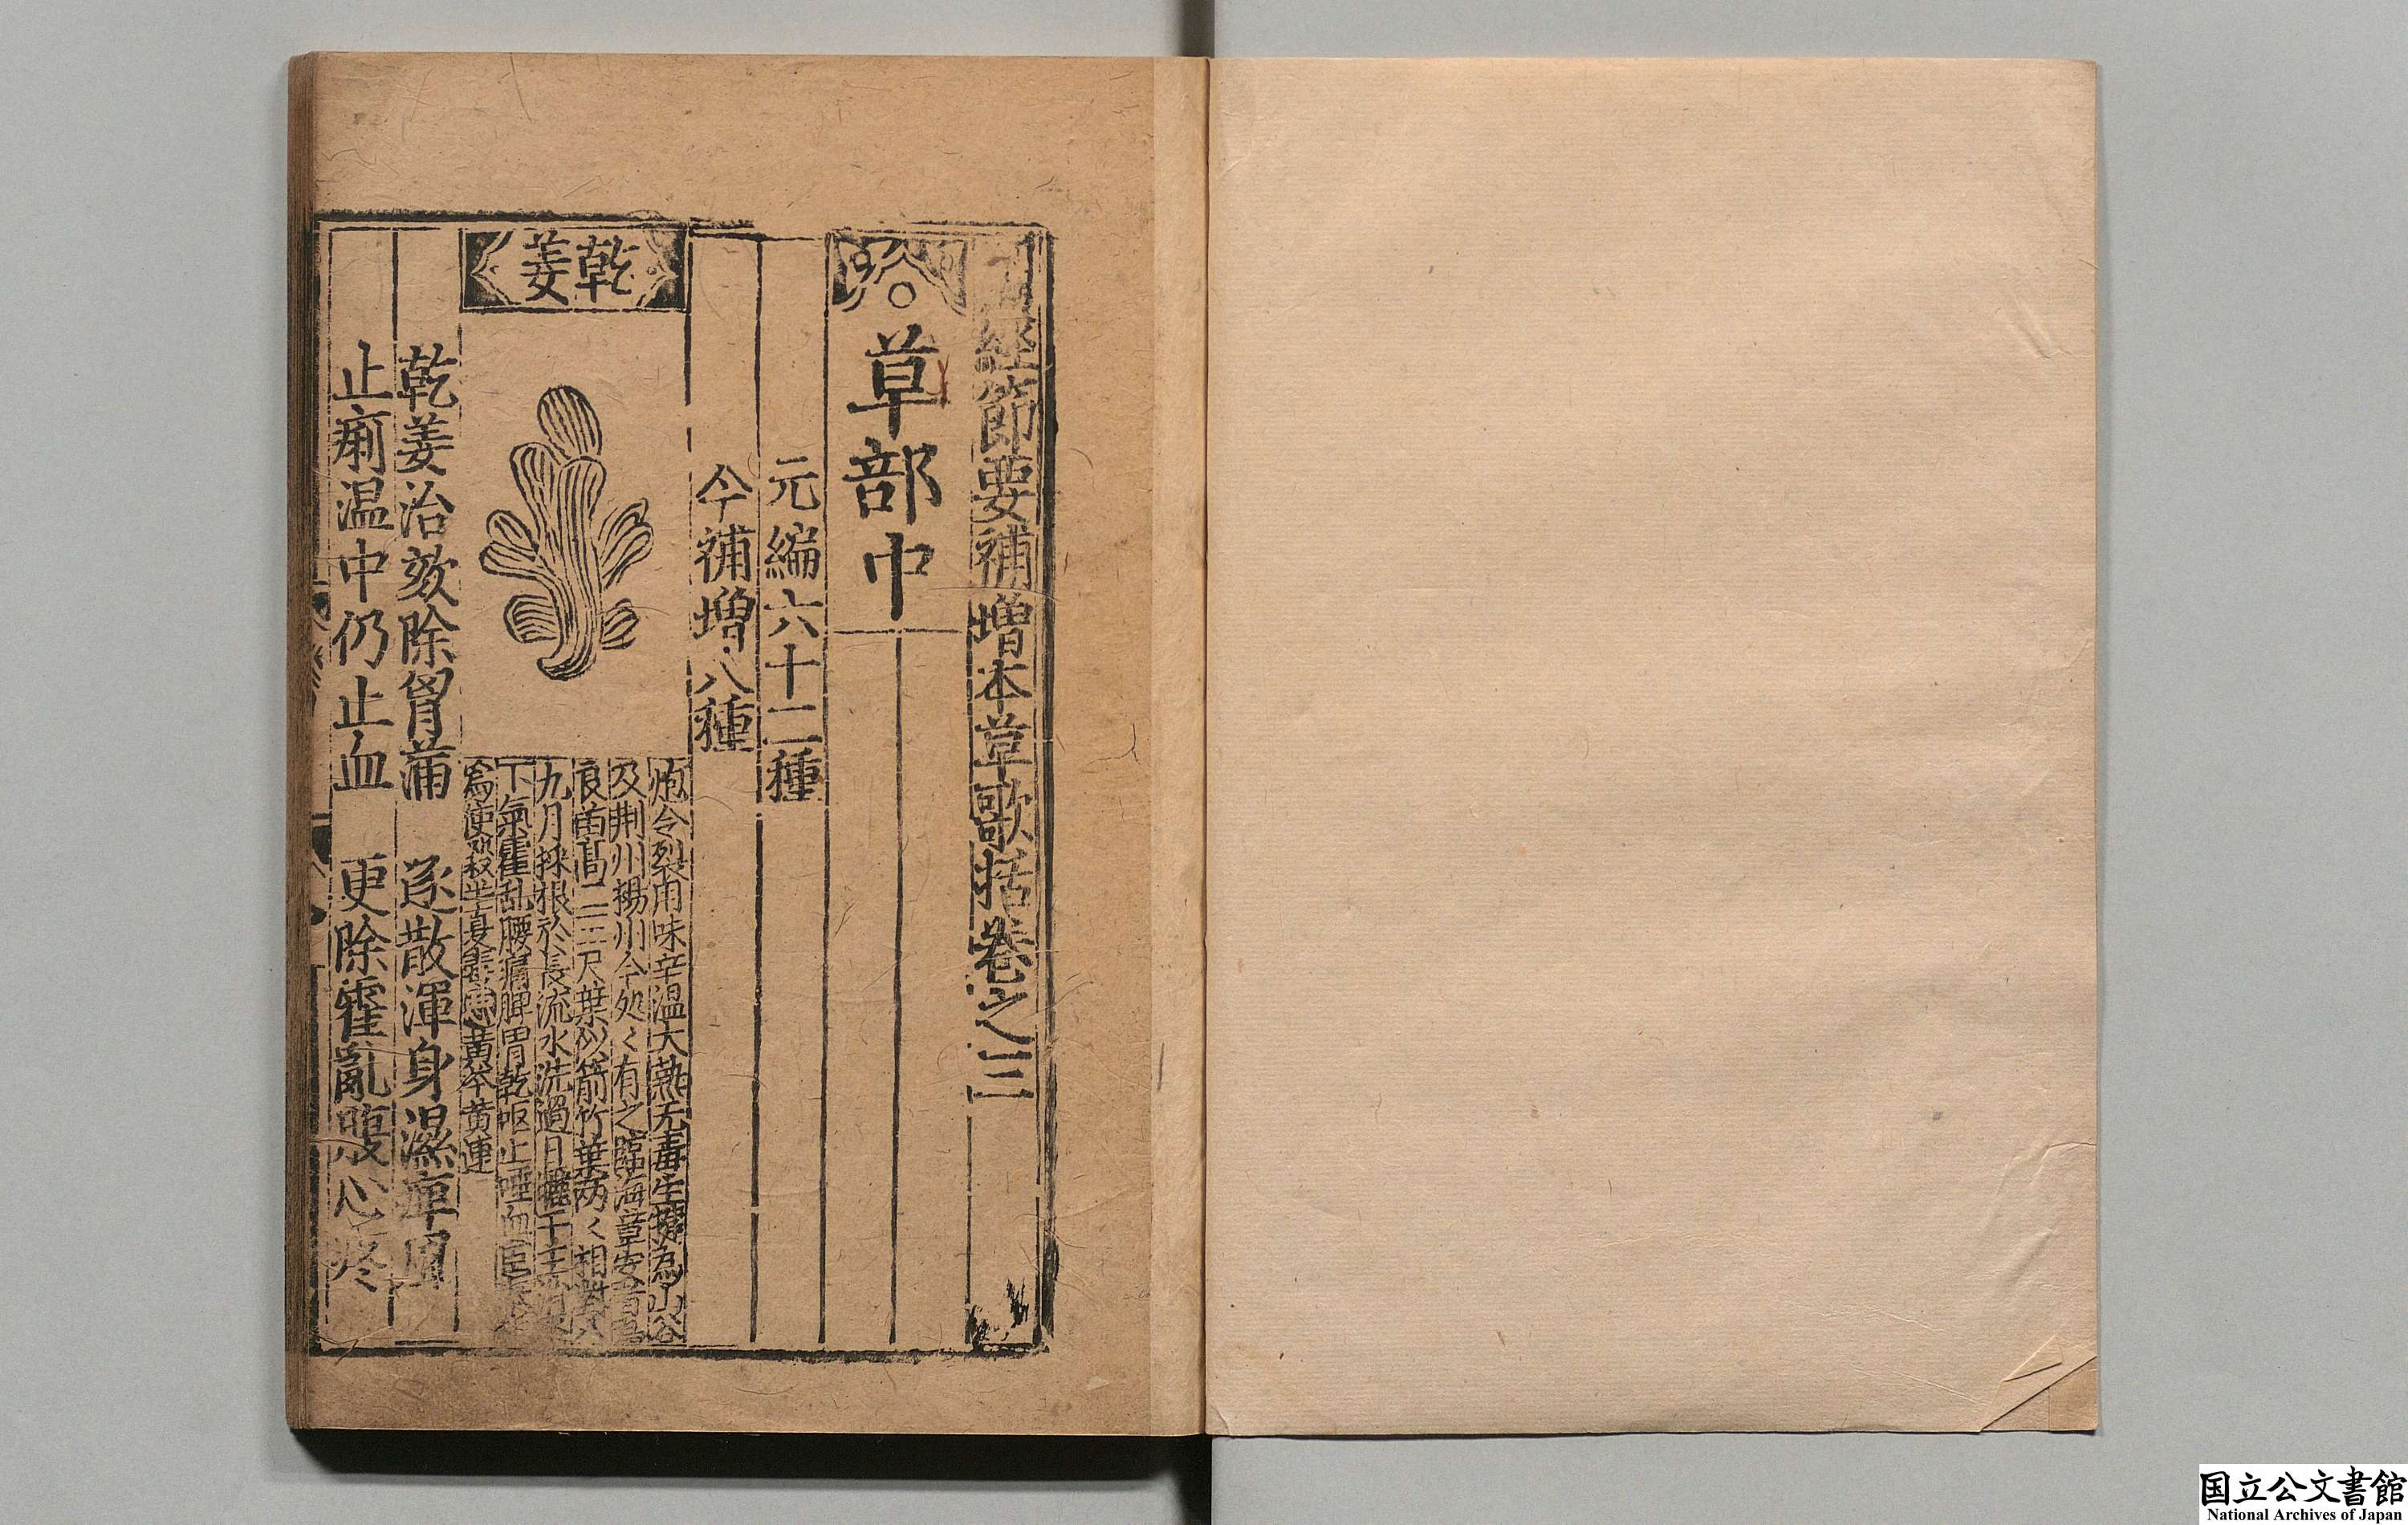 經節要補增本草歌括卷之三
草部中
元編六十二種
今補增八種
乾姜
炮令裂用味辛温大熱无毒生犍為山谷
及荆州揚州今処〻有之臨海章安者為
良苗高二三尺葉似箭竹葉两〻相對
九月採根於長流水洗過日曬干主
下氣霍乱腰痛脾胃乾呕止唾血
為使殺半夏莨菪惡黃芩黄連
乾姜治欬除胷滿　逐散渾身濕痺
止痢温中仍止血　更除霍亂腹心疼
国立公文書館
National Archives of Japan